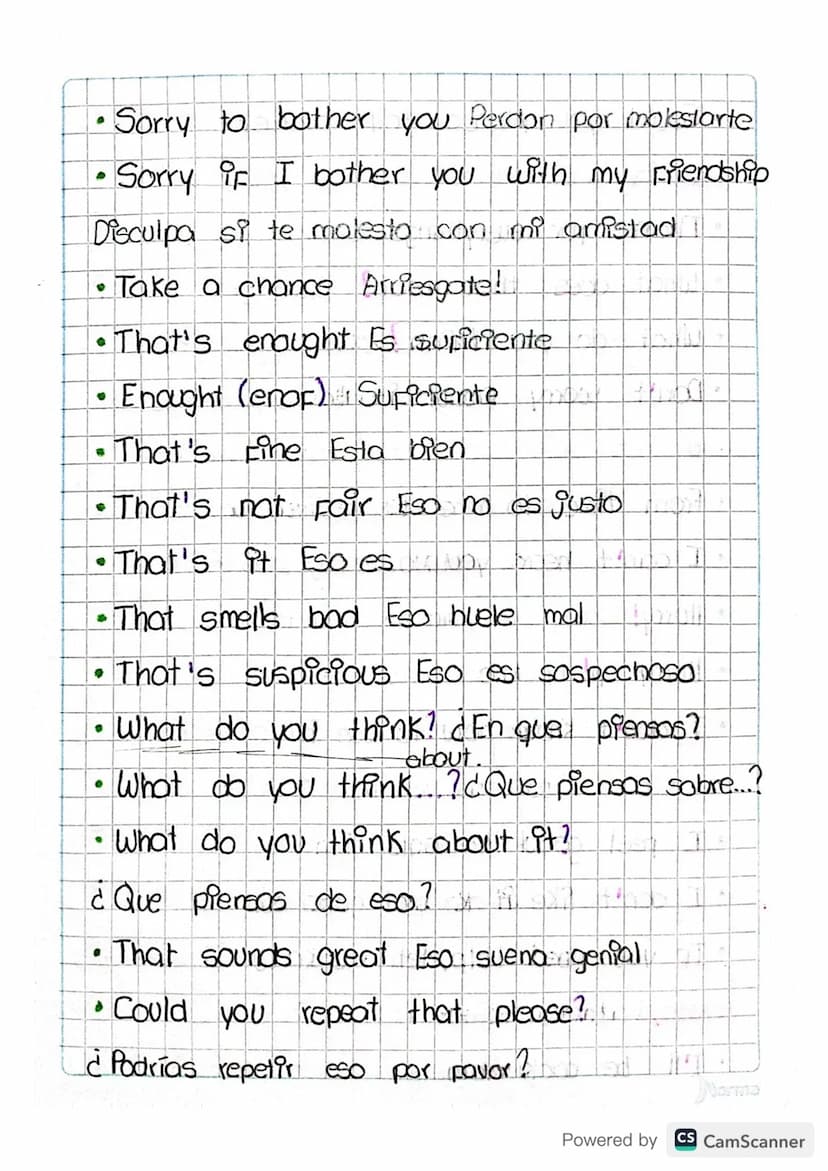 • Sorry to bother you Perdon por molestarte
• Sorry if I bother you with my friendship
Disculpa si te molesto con mi amistad
• Take a chance Arriesgate!
• That's enought Es suficiente
• Enought (enof) Suficiente
• That's fine Esta bien
• That's not fair Eso no es justo
• That's it Eso es
• That smells bad Eso huele mal
• That's suspicious Eso es sospechoso
• What do you think? ¿En que piensas?
about.
• What do you think...? ¿Que piensas sobre...?
• What do you think about it?
¿Que piensas de eso?
• That sounds great Eso suena genial
• Could you repeat that please?
¿Podrías repetir eso por favor?
Norma
Powered by CS CamScanner